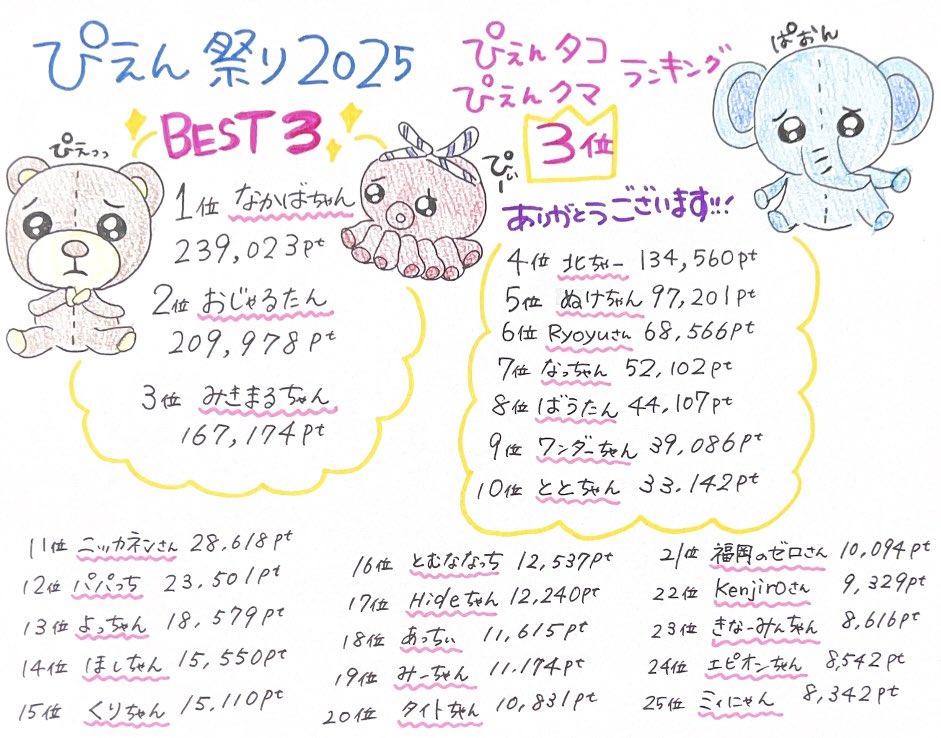 ぴえん祭り2025
BEST3
ぴえっっ
1位 なかばちゃん
239,023pt
2位 おじゃるたん
209,978pt
3位 みきまるちゃん
167,174pt
ぴえんタコ
ぴえんクマ
ランキング
3位
ぴー
ぱおん
ありがとうございます!!!
4位 北ちゃー 134,560pt
5位 ぬけちゃん 97,201pt
6位 Ryoyuさん 68,566pt
7位 なっちゃん 52,102pt
8位 ばうたん 44,107pt
9位 ワンダーちゃん 39,086pt
10位 ととちゃん 33.142pt
11位 ニッカネンさん 28,618pt
12位 パパっち 23,501pt
13位 よっちゃん 18,579pt
14位 ほしちゃん 15,550pt
15位 くりちゃん 15,110pt
16位 とむななっち 12,537pt
17位 Hideちゃん 12,240pt
18位 あっちぃ 11,615pt
19位 みーちゃん 11.174pt
20位 タイトちゃん 10,831pt
21位 福岡のゼロさん 10,094pt
22位 Kenjiroさん 9,329pt
23位 きなーみんちゃん 8,616pt
24位 エピオンちゃん 8,542pt
25位 ミィにゃん 8,342pt